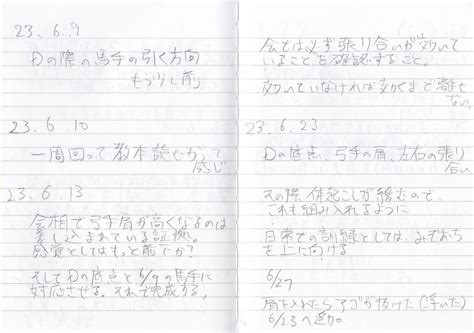 23. 6. 9
Dの際の馬手の引く方向
もう少し前
23. 6. 10
一周回って教本読むかって
感じ
23. 6. 13
会相で弓手肩が高くなるのは
差し込まれている証拠。
感覚としてはもっと前でか?
そしてDの底点と6/9の馬手に
対応させる。それで完成する。
会では必ず張り合いが効いて
いることを確認すること。
効いていなければ効くまで離せ
ない。
23. 6. 23
Dの底点、弓手の肩、左右の張り
合い
その際、体起こしが緩むので、
これも組み入れるように
日常での訓練としては、みぞおち
を上に向ける
6/27
肩を入れたらアゴが抜けた(浮いた)
6/23へ遡り。